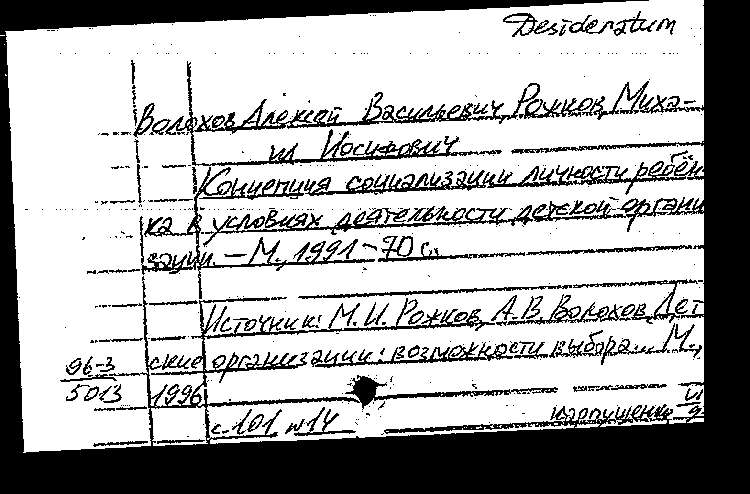 Desideratum
Волохов Алексей Васильевич, Рожков Миха-
ил Иосифович
Концепция социализации личности ребён
ка в условиях деятельности детской органи
зации. – М., 1991 – 70 с.
Источник: М.И. Рожков, А.В. Волохов Дет
ские организации: возможности выбора... М.,
96-3
5013
1996
с. 101, № 14